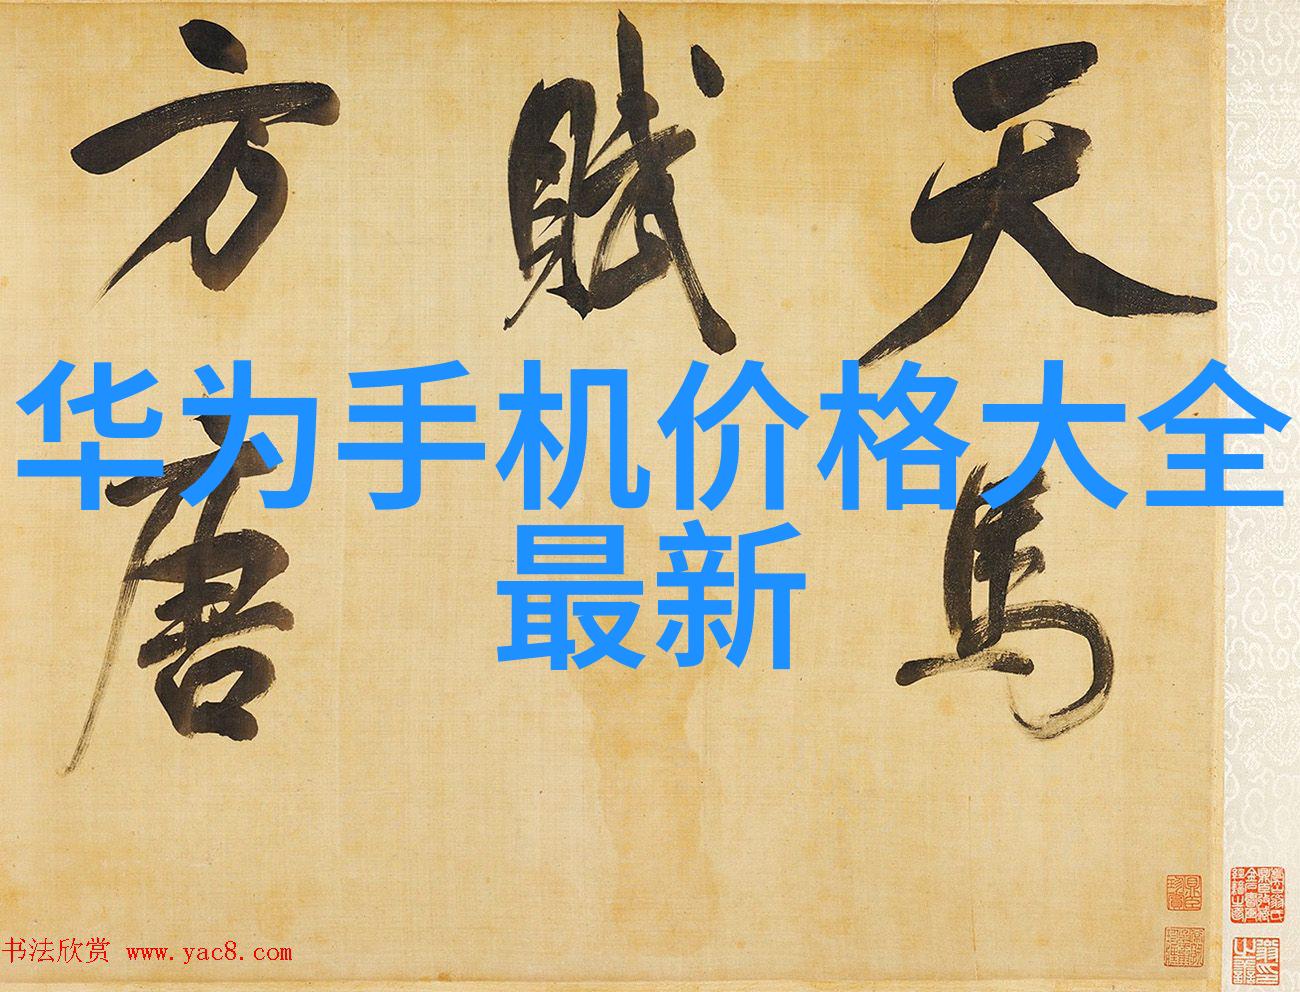 天马
赋
唐
方
华为手机价格大全
最新
书法欣赏 www.yac8.com